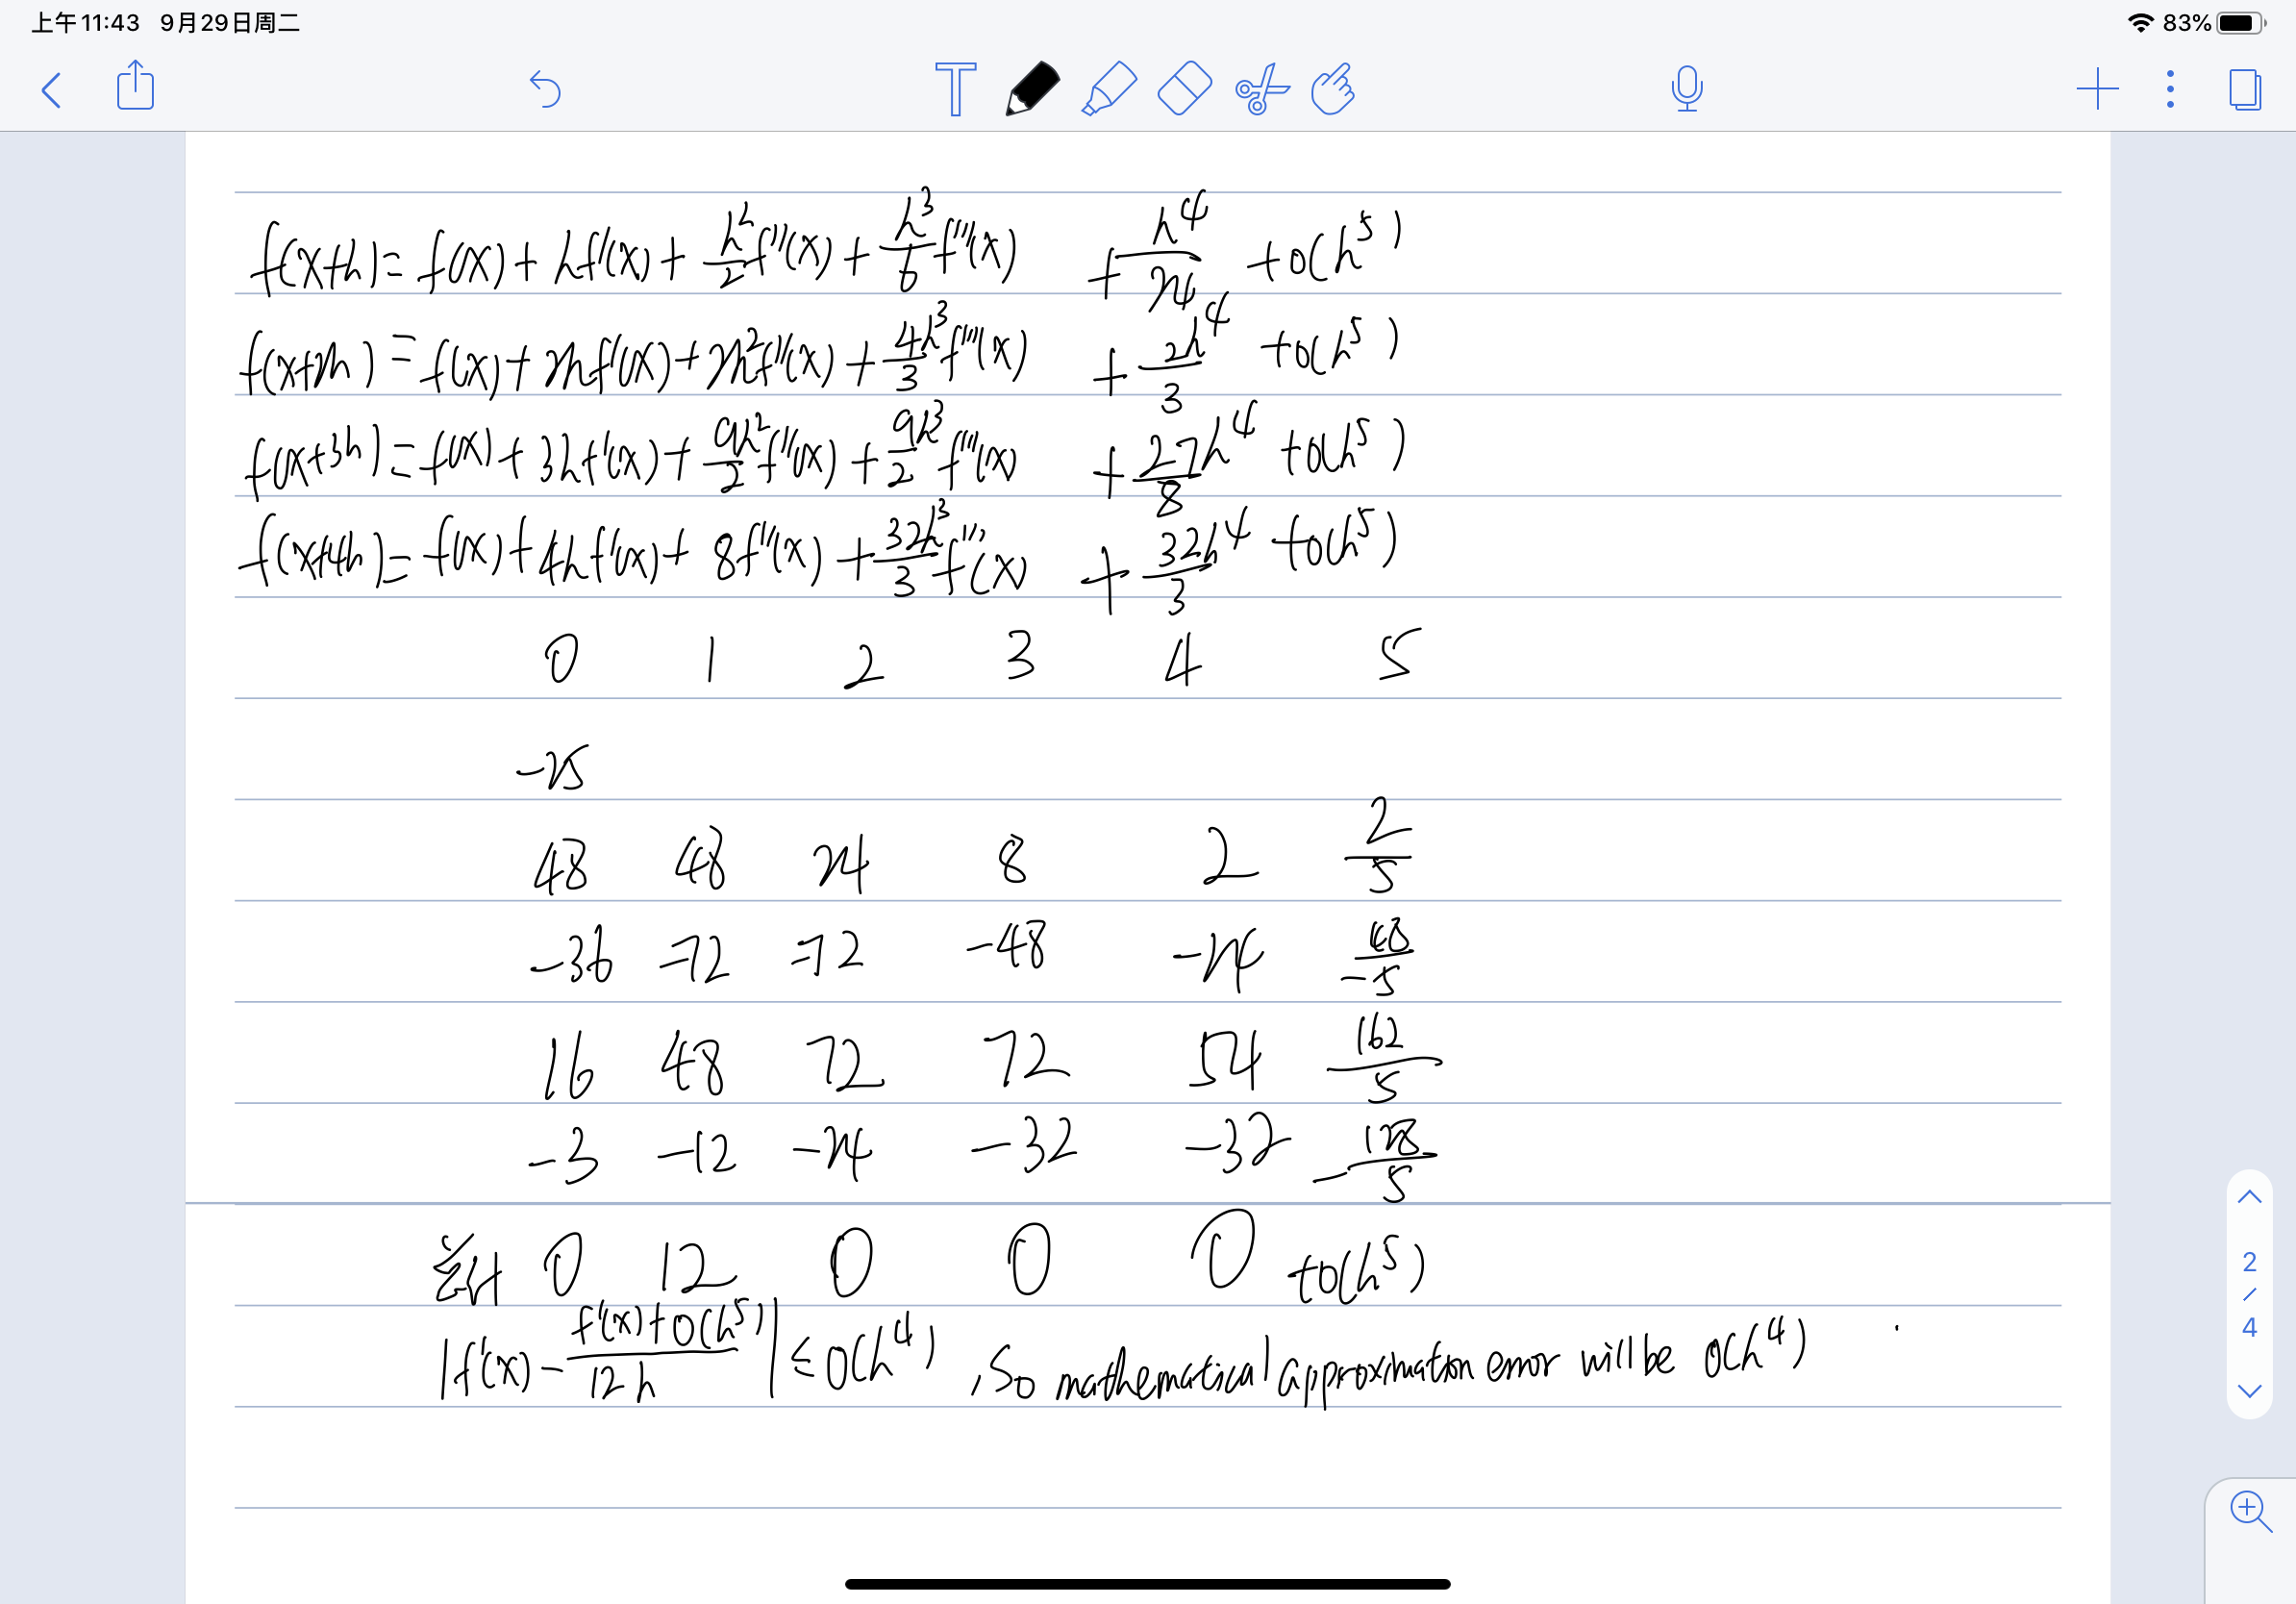 上午11:43 9月29日周二 83%
T
f(x+h)=f(x)+hf'(x)+h²/2 f''(x)+h³/6 f'''(x) +h⁴/24 +o(h⁵)
f(x+2h)=f(x)+2hf'(x)+2h²f''(x)+4h³/3 f'''(x) +2h⁴/3 +o(h⁵)
f(x+3h)=f(x)+3hf'(x)+9h²/2 f''(x)+9h³/2 f'''(x) +27h⁴/8 +o(h⁵)
f(x+4h)=f(x)+4hf'(x)+8f''(x)+32h³/3 f'''(x) +32h⁴/3 +o(h⁵)
0 1 2 3 4 5
-25
48 48 24 8 2 2/5
-36 -72 -72 -48 -24 -48/5
16 48 72 72 54 162/5
-3 -12 -24 -32 -32 -128/5
总计 0 12 0 0 0 +o(h⁵)
|f'(x)-(f'(x)+o(h⁵))/12h|≤o(h⁴), So mathematical approximation error will be o(h⁴).
2/4